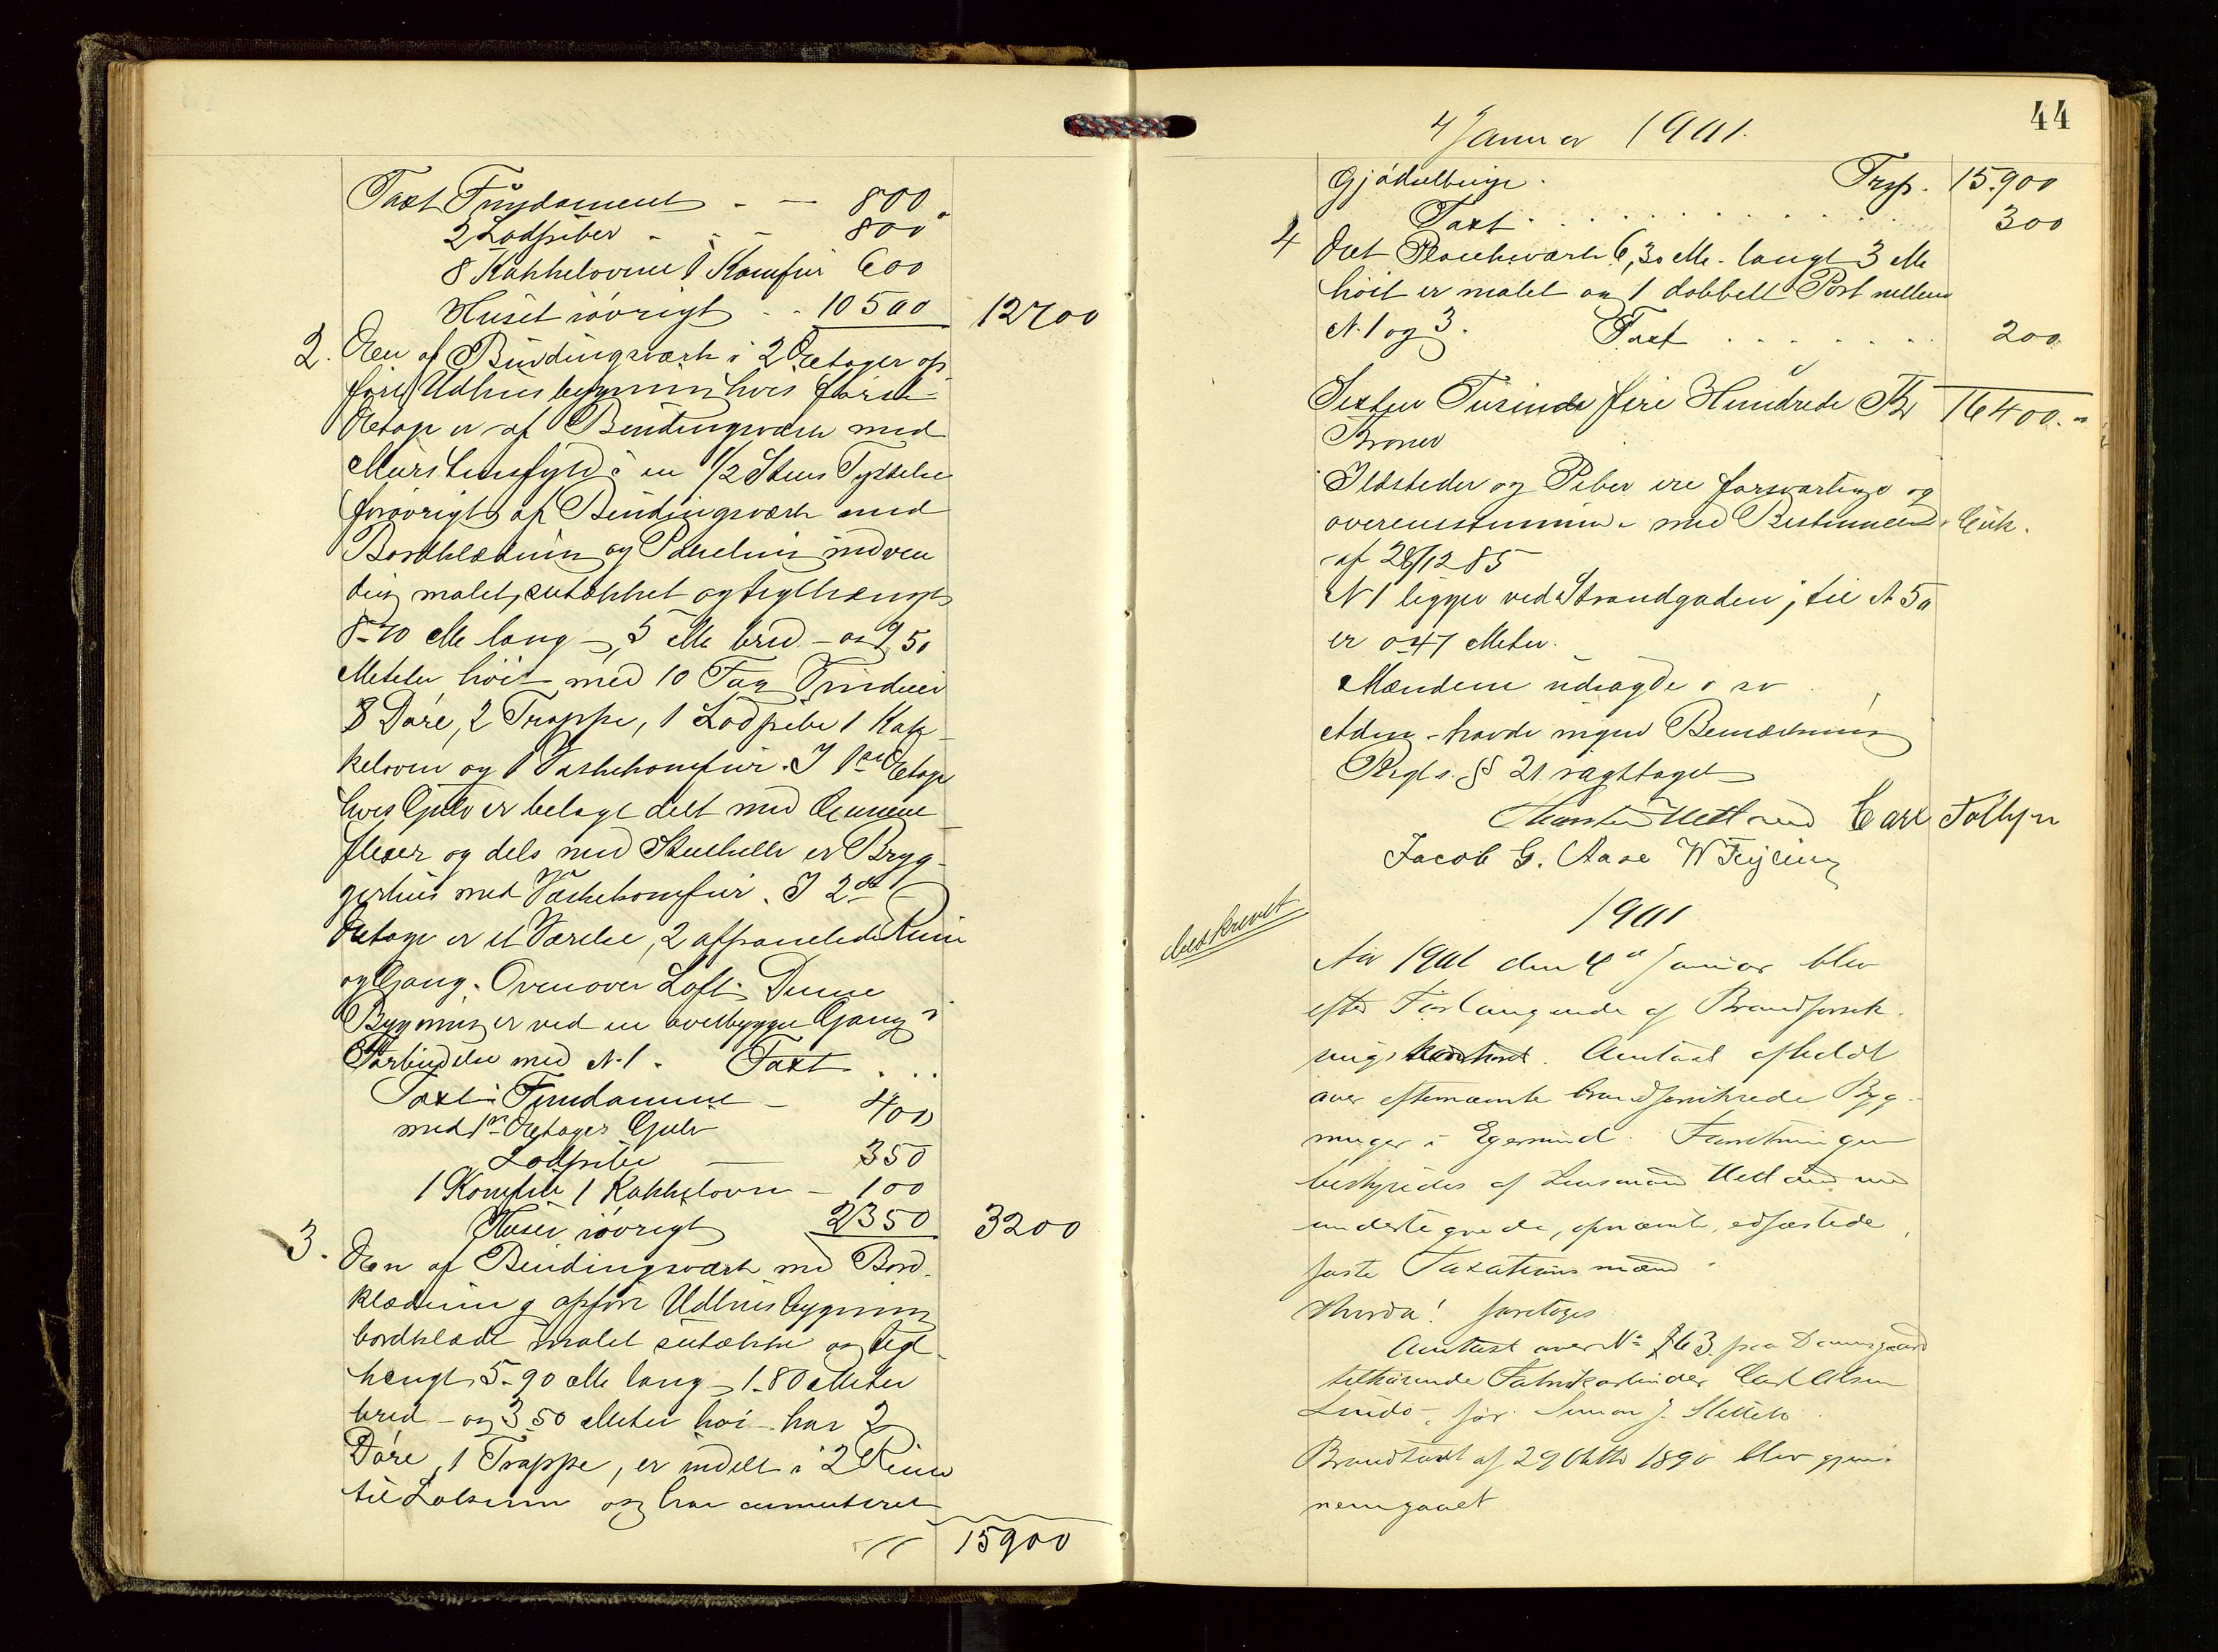 Taxt Fundament - — 800
2 Lodpiber - - - 800
8 Kakkelovne 1 Komfur 600
Huset iøvrigt - - 10500 12700
2. Een af Bindingsværk i 2 Etager op
ført Udhusbygning hvis første
Etage er af Bindingsværk med
Murstensfyld i en 1/2 Stens Tykkelse
forøvrigt af Bindingsværk med
Bordklædning og Paneling indven
dig malet, sutækket og teglhængt
8-70 Me lang - 5 Me bred - og 9 50
Meter høit med 10 Fag Vinduer
8 Døre, 2 Trappe, 1 Lodpibe 1 Kak-
kelovn og 1 Vaskekomfur. I 1ste Etage
hvis Gulv er belagt delt med Cement
fliser og dels med Stenheller er Bryg-
gerhus med Vaskekomfur. I 2den
Etage er et Værelse, 2 afpanelede Rum
og Gang. Ovenover Loft. Denne
Bygning er ved en overbygget Gang i
Forbindelse med N. 1. Taxt . . .
Taxt Fundament - 400
med 1ste Etages Gulv
Lodpibe — 350
1 Komfur 1 Kakkelovn - 100
Huset iøvrigt 2350 3200
3. Een af Bindingsværk med Bord-
klædning opført Udhusbygning
bordklædt malet sutække og tegl-
hængt, 5-90 Me lang - 1-80 Meter
bred - og 3 50 Meter høi - har 2
Døre, 1 Trappe, er inddelt i 2 Rum
til Lokum og har cementeret
15900
44
4 Januar 1901.
Gjødselbinge. Trsp. 15.900
Taxt . . . . . . . . 300
4 Eet Plankeværk 6,30 Me. langt 3 Me
høit er malet og 1 dobbelt Port mellem
N. 1 og 3. Taxt . . . . . . . 200
Sexten Tusinde fire Hundrede Kr 16400.
Kroner
Ildsteder og Piber ere forsvarlige og
overensstemmende med Bestemmelse Cirk.
af 28/12 85
N 1 ligger ved Strandgaden; til N 50
er 0-47 Meter.
Mændene udsagde
havde ingen Bemærkning
Regl s. § 21 iagttaget
Thorsten Hetland Carl Tollefsen
Jacob G. Aase W Feyling
1901
beskrevet
Aar 1901 den 4de Januar blev
efter Forlangende af Brandforsik-
rings kontoret. Omtaxt afholdt
over efternævnte brandforsikrede Byg-
ninger i Egersund. Forretningen
bestyredes af Lensmand Hetland med
undertegnede, opnævnte, edfæstede
faste Taxationsmænd.
Hvorda! foretoges
Omtaxt over No 763 paa Damsgaard
tilhørende Fabrikarbeider Carl Olsen
Lindø, før Simon J. Sletteb
Brandtaxt af 29 Oktbr 1890 blev gjen-
nemgaaet